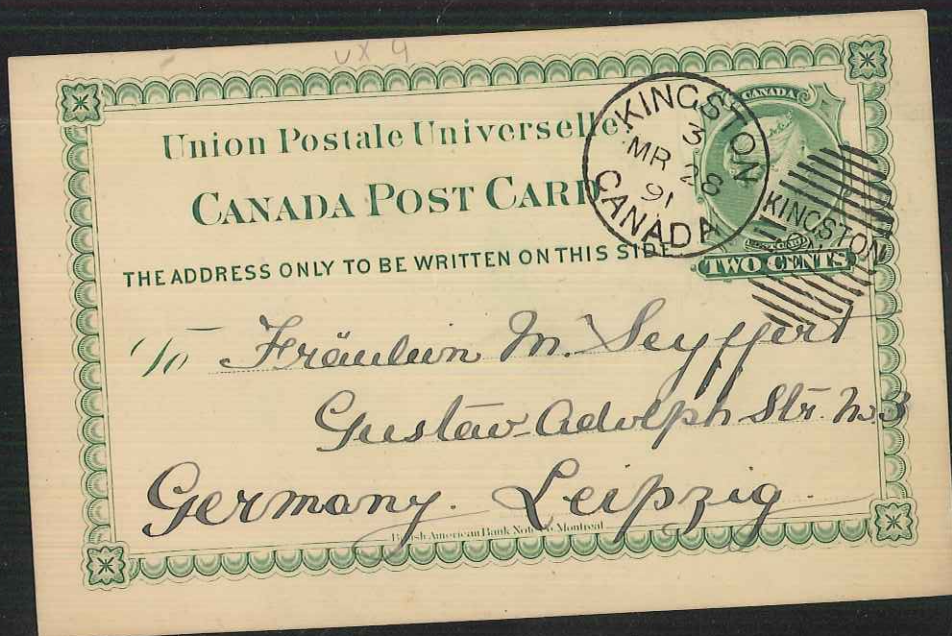 UX 4
Union Postale Universelle
CANADA POST CARD
THE ADDRESS ONLY TO BE WRITTEN ON THIS SIDE
CANADA
TWO CENTS
KINGSTON
3
MR 28
91
CANADA
KINGSTON
To Fräulein M. Seyffert
Gustav-Adolph Str. No. 3
Germany. Leipzig.
British American Bank Note Co Montreal